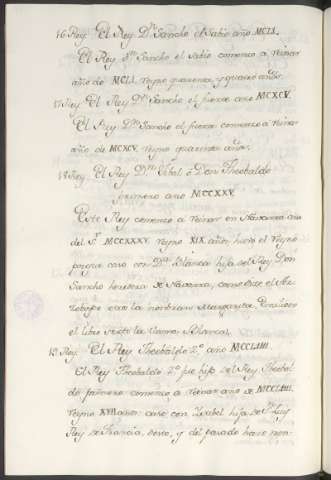 16 Rey. El Rey Dn. Sancho el Sabio año MCLI.
El Rey Dn. Sancho el Sabio comenzo a reinar
año de MCLI. reyno quarenta, y quatro años.
17 Rey. El Rey Dn. Sancho el fuerte ano MCXCV.
El Rey Dn. Sancho el fuerte comenzo a reinar
año de MCXCV. reyno quarenta años.
18 Rey. El Rey Dn. ó Don Theobaldo
primero ano MCCXXXV.
Este Rey comenzo a reinar en Navarra año
del Sr. MCCXXXV. reyno XIX. años, huvo el Reyno
porque caso con Dña. Blanca hija del Rey Don
Sancho heredera de Navarra, como dice el Ar-
zobispo, otros la nombran Margarita,
el libro la llama Blanca.
19 Rey. El Rey Theobaldo 2.º año MCCLIIII.
El Rey Theobaldo 2.º fue hijo del Rey Theobal-
do primero comenzo a reinar año de MCCLIIII.
reyno años caso con Isabel hija de Sn. Luis
Rey de Francia, deste, y del pasado hace men-